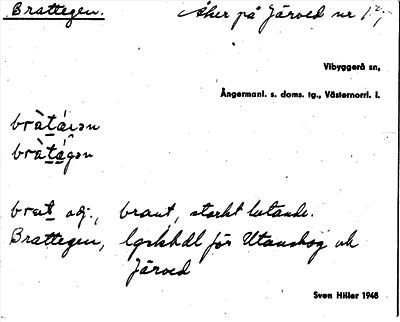 Brattegen. Åker på Järved nr 17,
Vibyggerå sn,
Ångermanl. s. doms. tg., Västernorrl. l.
bràtáiən
bràtágən
brat adj., brant, starkt lutande.
Brattegen, för Utanskog och
Järved
Sven Hiller 1948